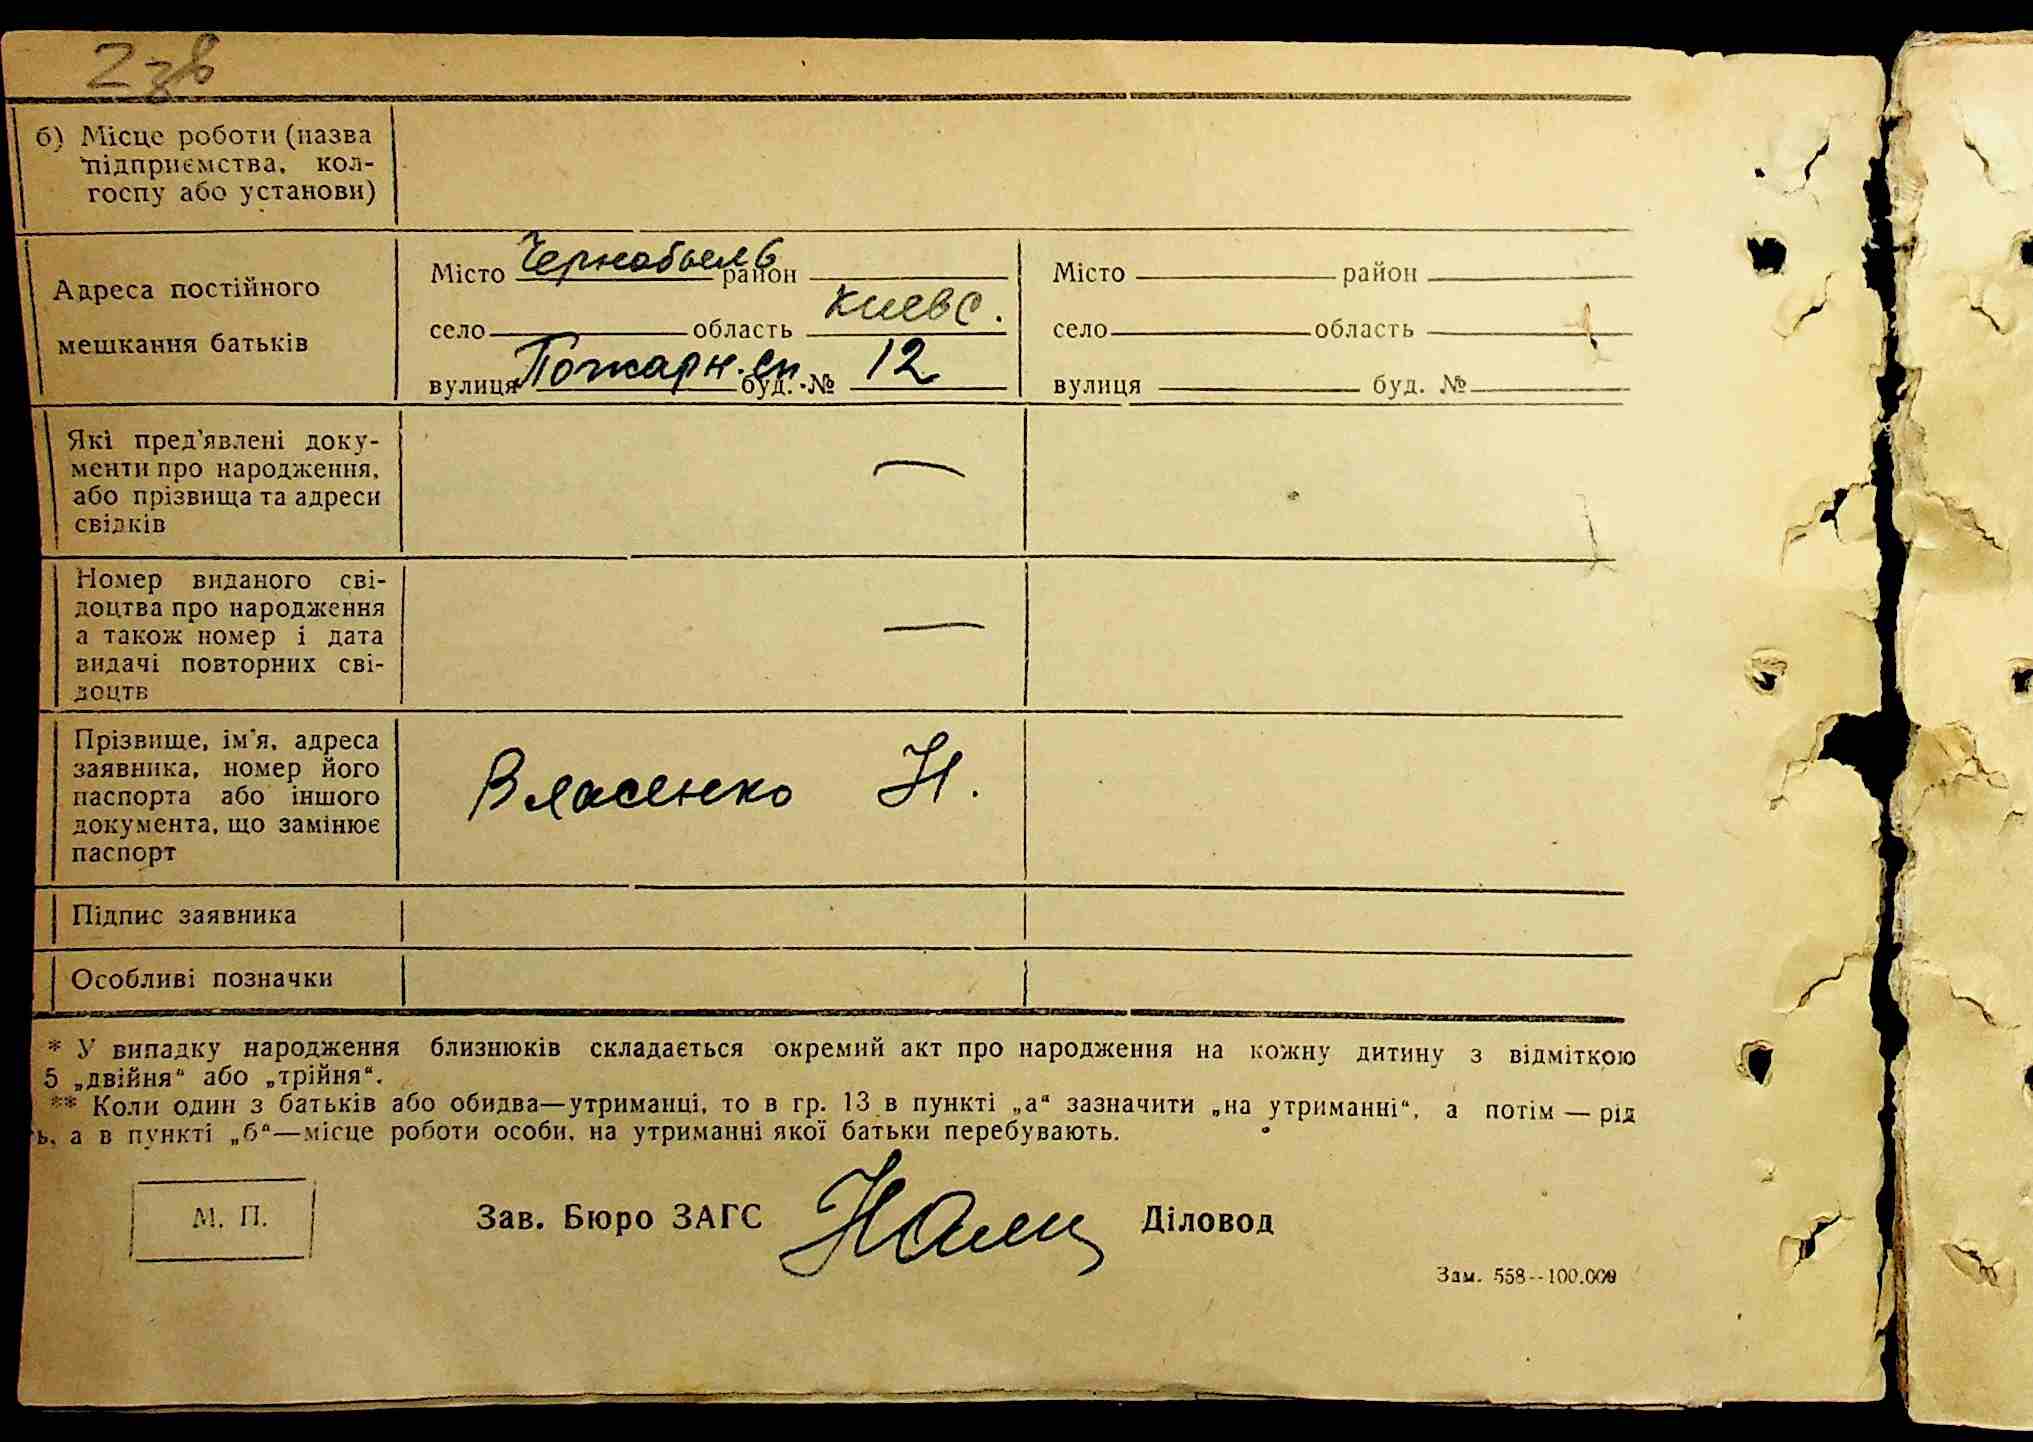 2 зв
б) Місце роботи (назва
підприємства, кол-
госпу або установи)
Адреса постійного
мешкання батьків
Місто Чернобыель район
село область Киевс.
вулиця Пожарн. сп буд. № 12
Місто район
село область
вулиця буд. №
Які пред'явлені доку-
менти про народження,
або прізвища та адреси
свідків
—
Номер виданого сві-
доцтва про народження
а також номер і дата
видачі повторних сві-
доцтв
—
Прізвище, ім'я, адреса
заявника, номер його
паспорта або іншого
документа, що замінює
паспорт
Власенко Н.
Підпис заявника
Особливі позначки
* У випадку народження близнюків складається окремий акт про народження на кожну дитину з відміткою
5 „двійня“ або „трійня“.
** Коли один з батьків або обидва—утриманці, то в гр. 13 в пункті „а“ зазначити „на утриманні“, а потім — рід
ь, а в пункті „б“—місце роботи особи, на утриманні якої батьки перебувають.
М. П.
Зав. Бюро ЗАГС Діловод
Зам. 558--100.000